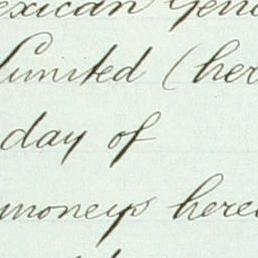 exican Gene
Limited (her
day of
moneys here